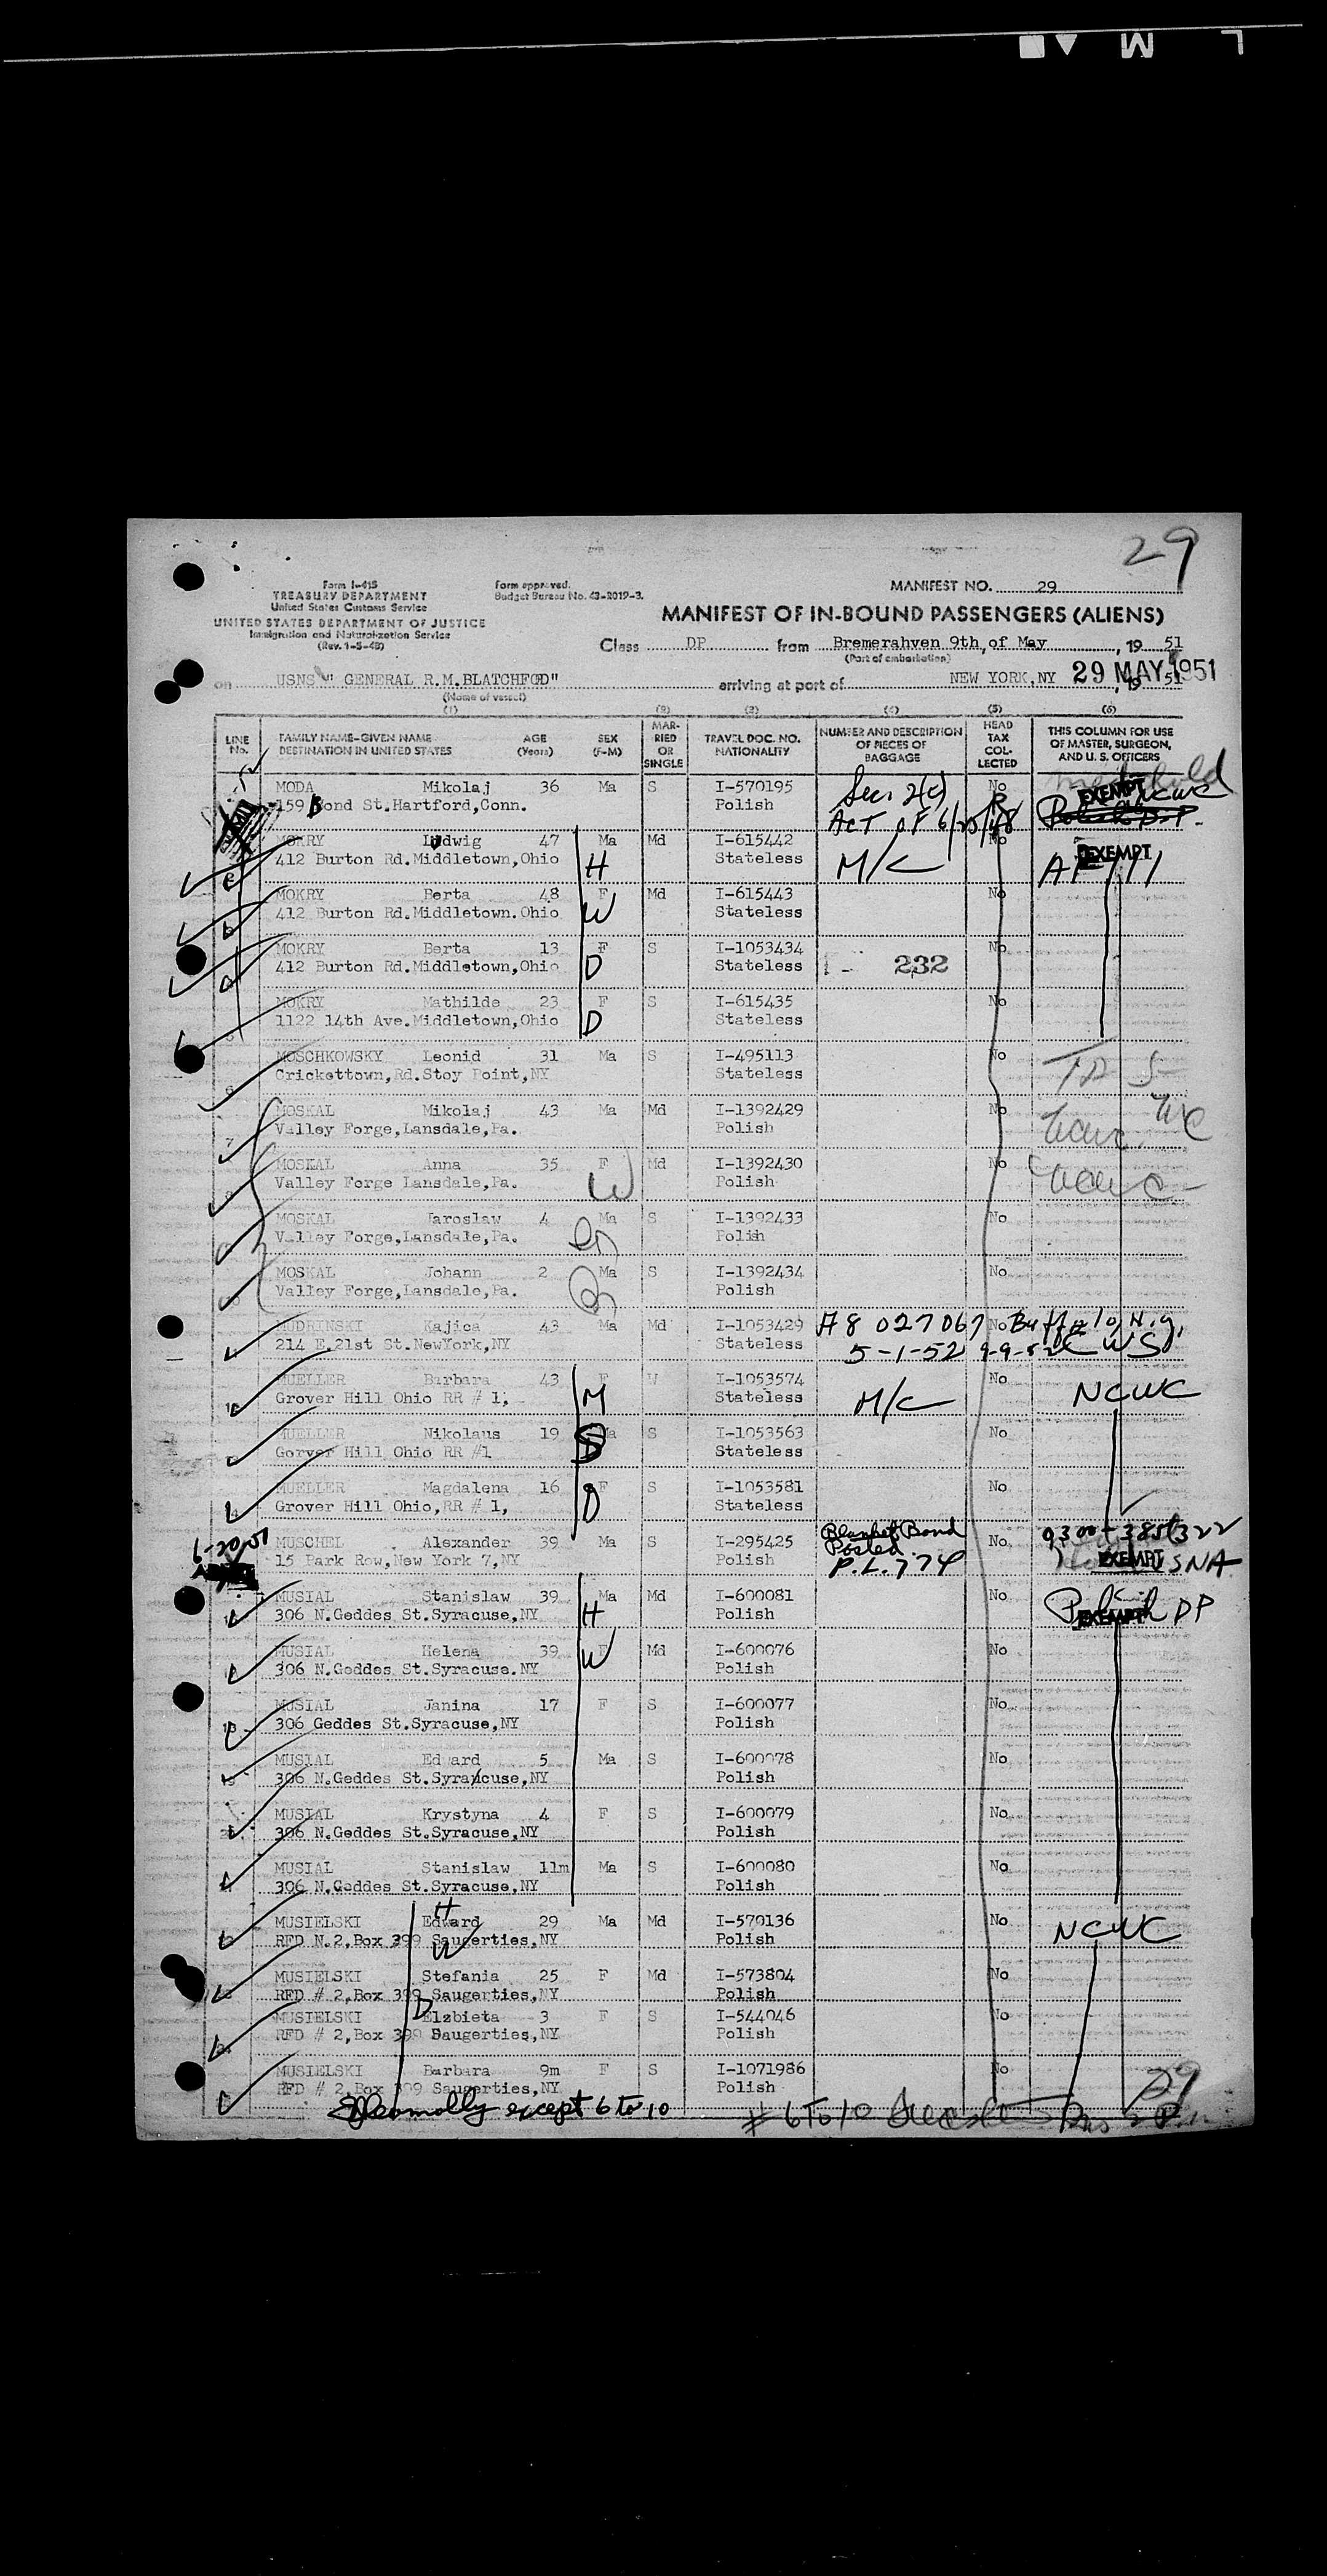 L M
29
Form I-415
TREASURY DEPARTMENT
United States Customs Service
UNITED STATES DEPARTMENT OF JUSTICE
Immigration and Naturalization Service
(Rev. 1-5-48)
Form approved.
Budget Bureau No. 43-2019-3.
MANIFEST NO. 29
MANIFEST OF IN-BOUND PASSENGERS (ALIENS)
Class DP from Bremerahven 9th, of May, 19 51
(Port of embarkation)
on USNS " GENERAL R.M.BLATCHFORD" arriving at port of NEW YORK,NY 29 MAY 1951, 19 51
(Name of vessel)
(1) (2) (3) (4) (5) (6)
LINE No. FAMILY NAME-GIVEN NAME DESTINATION IN UNITED STATES AGE (Years) SEX (F-M) MARRIED OR SINGLE TRAVEL DOC. NO. NATIONALITY NUMBER AND DESCRIPTION OF PIECES OF BAGGAGE HEAD TAX COLLECTED THIS COLUMN FOR USE OF MASTER, SURGEON, AND U. S. OFFICERS
MODA Mikolaj 36 Ma S I-570195 Sec. 2(c) No EXEMPT NCWC
159 Bond St.Hartford,Conn. Polish ACT OF 6/25/48 Polish D.P.
MOKRY Ludwig 47 Ma Md I-615442 No EXEMPT
412 Burton Rd.Middletown,Ohio H Stateless M/C
MOKRY Berta 48 F Md I-615443 No
412 Burton Rd.Middletown.Ohio W Stateless
MOKRY Berta 13 F S I-1053434 No
412 Burton Rd.Middletown,Ohio D Stateless 232
MOKRY Mathilde 23 F S I-615435 No
1122 14th Ave.Middletown,Ohio D Stateless
5
MOSCHKOWSKY Leonid 31 Ma S I-495113 No
Crickettown,Rd.Stoy Point,NY Stateless
6
MOSKAL Mikolaj 43 Ma Md I-1392429 No
Valley Forge,Lansdale,Pa. Polish
7
MOSKAL Anna 35 F Md I-1392430 No
Valley Forge Lansdale,Pa. W Polish
MOSKAL Jaroslaw 4 Ma S I-1392433 No
Valley Forge,Lansdale,Pa. Polish
MOSKAL Johann 2 Ma S I-1392434 No
Valley Forge,Lansdale,Pa. Polish
MUDRINSKI Kajica 43 Ma Md I-1053429 A8 027067 No Buffalo, N.Y.
214 E.21st St.NewYork,NY Stateless 5-1-52 9-9-52 CWS
MUELLER Barbara 43 F W I-1053574 No NCWC
Grover Hill Ohio RR # 1, M Stateless M/C
MUELLER Nikolaus 19 Ma S I-1053563 No
Gorver Hill Ohio RR #1 Stateless
MUELLER Magdalena 16 F S I-1053581 No
Grover Hill Ohio,RR # 1, D Stateless
6-20-51 MUSCHEL Alexander 39 Ma S I-295425 Blanket Bond No 0300-385322
15 Park Row,New York 7,NY Polish Posted. P.L.774 EXEMPT USNA
MUSIAL Stanislaw 39 Ma Md I-600081 No Polish DP
306 N.Geddes St.Syracuse,NY H Polish EXEMPT
MUSIAL Helena 39 F Md I-600076 No
306 N.Geddes St.Syracuse.NY W Polish
MUSIAL Janina 17 F S I-600077 No
306 Geddes St.Syracuse,NY Polish
MUSIAL Edward 5 Ma S I-600078 No
306 N.Geddes St.Syracuse,NY Polish
MUSIAL Krystyna 4 F S I-600079 No
306 N.Geddes St.Syracuse,NY Polish
MUSIAL Stanislaw 11m Ma S I-600080 No
306 N.Geddes St.Syracuse,NY Polish
MUSIELSKI H Edward 29 Ma Md I-570136 No NCWC
RFD N.2,Box 399 Saugerties,NY W Polish
MUSIELSKI Stefania 25 F Md I-573804 No
RFD # 2,Box 399 Saugerties,NY Polish
MUSIELSKI D Elzbieta 3 F S I-544046 No
RFD # 2,Box 399 Saugerties,NY Polish
MUSIELSKI Barbara 9m F S I-1071986 No
RFD # 2,Box 399 Saugerties,NY Polish
29
except 6 to 10
# 6 To 10